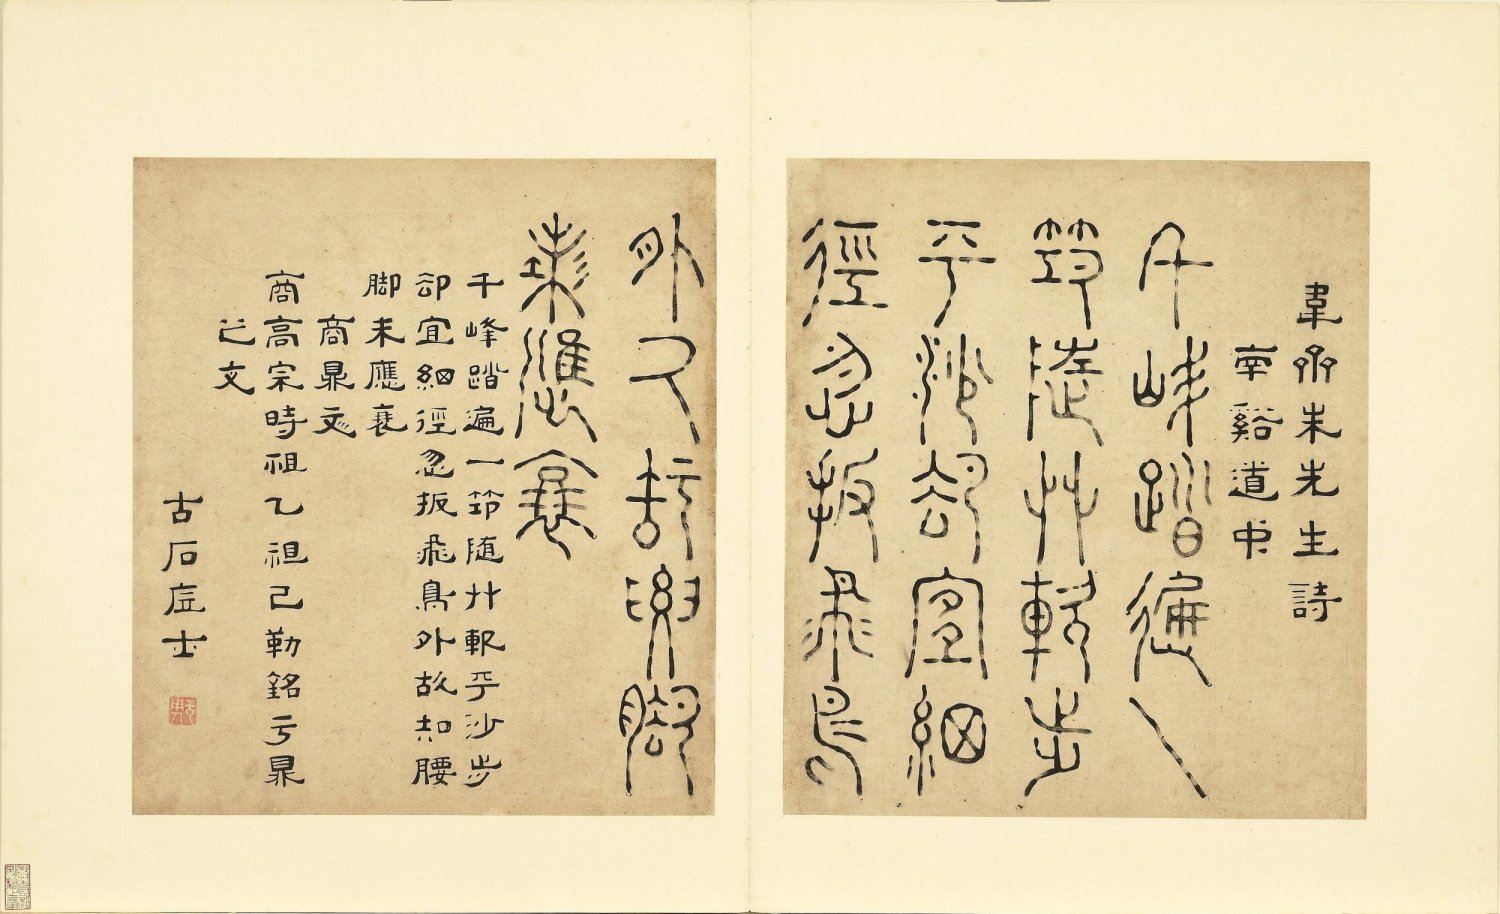 韋齋朱先生詩
南谿道中
千峰踏遍一
筇隨艸軟步
平沙卻宜細
徑忽扳飛鳥
外腳
未應衰
千峰踏遍一筇随艸軟平沙步
却宜細徑忽扳飛鳥外故知腰
脚未應衰
商鼎文
商高宗時祖乙祖己勒銘于鼎
之文
古石士